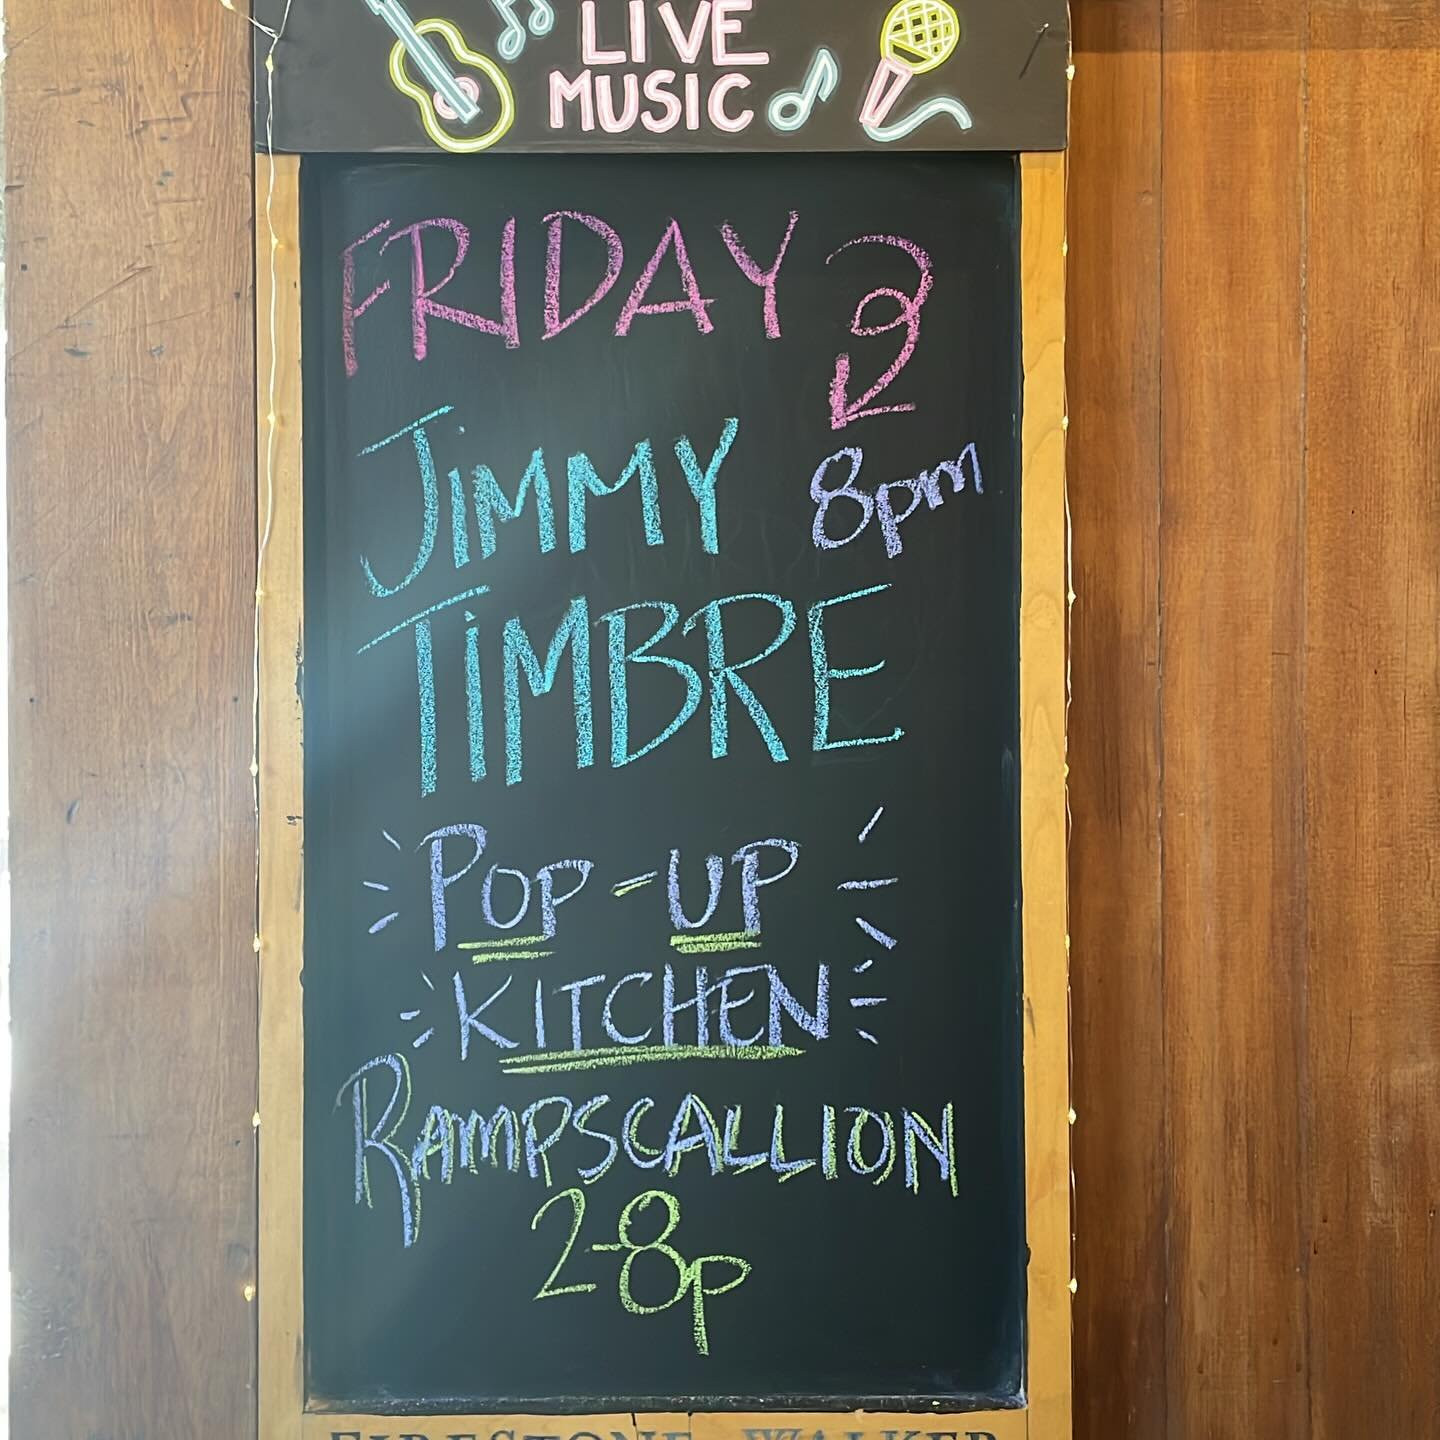 LIVE
MUSIC
FRIDAY 2
JIMMY 8pm
TIMBRE
POP-UP
KITCHEN
RAMPSCALLION
2-8p
FIRESTONE WALKER